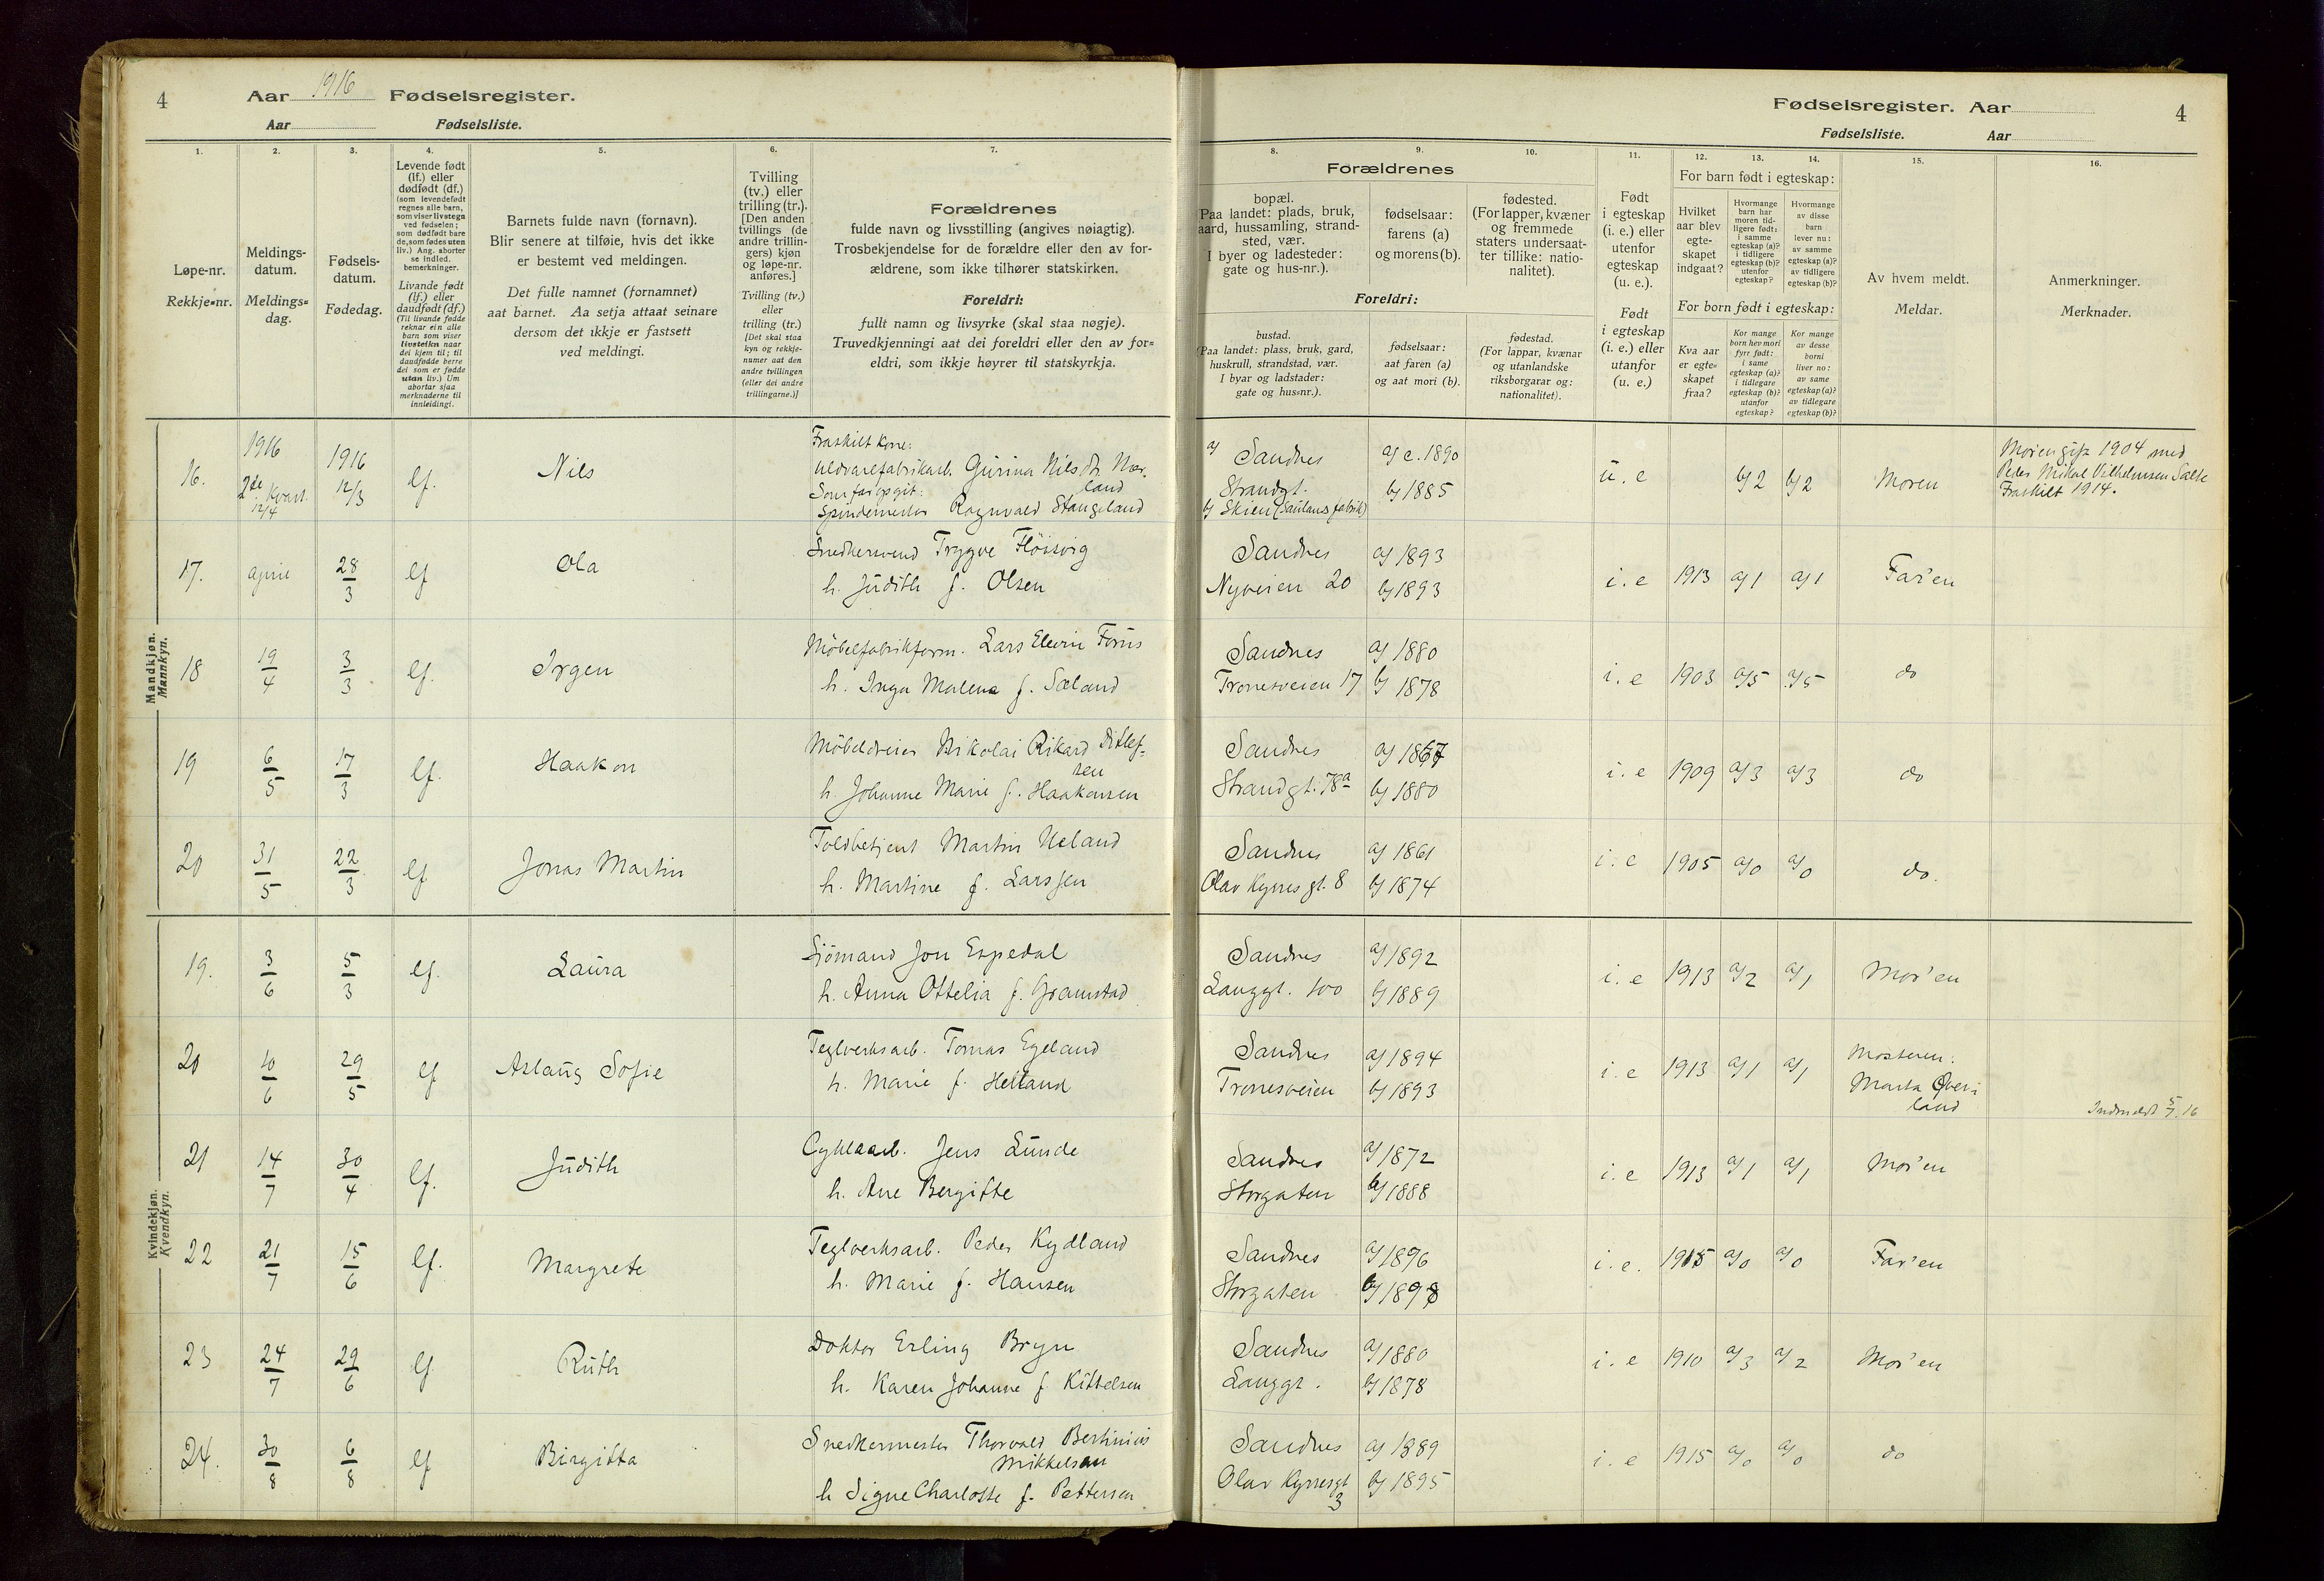 4
Aar 1916 Fødselsregister.
Aar Fødselsliste.
1.
2.
3.
4.
5.
6.
7.
Løpe-nr.
Rekkje-nr.
Meldings-
datum.
Meldings-
dag.
Fødsels-
datum.
Fødedag.
Levende født
(lf.) eller
dødfødt (df.)
(som levendefødt
regnes alle barn,
som viser livstegn
ved fødselen;
som dødfødt bare
de, som fødes uten
liv.) Ang. aborter
se indled.
bemerkninger.
Livande født
(lf.) eller
daudfødt (df.)
(Til livande fødde
reknar ein alle
barn som viser
livsteikn naar
dei kjem til; til
daudfødde berre
dei som er fødde
utan liv.) Um
abortar sjaa
merknaderne til
innleidingi.
Barnets fulde navn (fornavn).
Blir senere at tilføie, hvis det ikke
er bestemt ved meldingen.
Det fulle namnet (fornamnet)
aat barnet. Aa setja attaat seinare
dersom det ikkje er fastsett
ved meldingi.
Tvilling
(tv.) eller
trilling (tr.).
[Den anden
tvillings (de
andre trillin-
gers) kjøn
og løpe-nr.
anføres.]
Tvilling (tv.)
eller
trilling (tr.)
[Det skal staa
kyn og rekkje-
numer aat den
andre tvillingen
(eller dei andre
trillingarne.)]
Forældrenes
fulde navn og livsstilling (angives nøiagtig).
Trosbekjendelse for de forældre eller den av for-
ældrene, som ikke tilhører statskirken.
Foreldri:
fullt namn og livsyrke (skal staa nøgje).
Truvedkjenningi aat dei foreldri eller den av for-
eldri, som ikkje høyrer til statskyrkja.
Fødselsregister. Aar
4
Fødselsliste. Aar
8.
9.
10.
11.
12.
13.
14.
15.
16.
Forældrenes
bopæl.
Paa landet: plads, bruk,
aard, hussamling, strand-
sted, vær.
I byer og ladesteder:
gate og hus-nr.).
fødselsaar:
farens (a)
og morens (b).
fødested.
(For lapper, kvæner
og fremmede
staters undersaat-
ter tillike: natio-
nalitet).
Foreldri:
bustad.
(Paa landet: plass, bruk, gard,
huskrull, strandstad, vær.
I byar og ladstader:
gate og hus-nr.).
fødselsaar:
aat faren (a)
og aat mori (b).
fødestad.
(For lappar, kvænar
og utanlandske
riksborgarar og:
nationalitet).
Født
i egteskap
(i. e.) eller
utenfor
egteskap
(u. e.).
Født
i egteskap
(i. e.) eller
utanfor
(u. e.)
For barn født i egteskap:
Hvilket
aar blev
egte-
skapet
indgaat?
Hvormange
barn har
moren tid-
ligere født:
i samme
egteskap (a)?
i tidligere
egteskap (b)?
utenfor
egteskap?
Hvormange
av disse
barn
lever nu:
av samme
egteskap (a)?
av tidligere
egteskap (b)?
For born født i egteskap:
Kva aar
er egte-
skapet
fraa?
Kor mange
born hev mori
fyrr født:
i same
egteskap (a)?
i tidlegare
egteskap (b)?
utanfor
egteskap?
Kor mange
av desse
borni
liver no:
av same
egteskap (a)?
av tidlegare
egteskap (b)?
Av hvem meldt.
Meldar.
Anmerkninger.
Merknader.
Mandkjøn.
Mannkyn.
16. 1916 2de Kvart. 12/4 1916 12/3 lf. Nils
Fraskilt Kone:
Uldvarefabrikarb. Gurina Nilsdtr. Nær-
land
Som far opgit:
Spindemester Ragnvald Stangeland
a) Sandnes
Strandgt.
b) Skien (Saulans fabrik)
a) c. 1890
b) 1885
u. e b) 2 b) 2 Moren
Moren gift 1904 med
Peder Mikal Vilhelmsen Salte
Fraskilt 1914.
17. april 28/3 lf Ola
Snedkersvend Tryggve Fløisvig
h. Judith f. Olsen
Sandnes
Nyveien 20
a) 1893
b) 1893
i. e 1913 a) 1 a) 1 Far'en
18 19/4 3/3 lf. Irgen
Møbelfabrikform. Lars Elevin Forus
h. Inga Malena f. Sæland
Sandnes
Tronesveien 17
a) 1880
b) 1878
i. e 1903 a) 5 a) 5 do
19 6/5 17/3 lf. Haakon
Møbeldreier Nikolai Rikard Ditlef-
sen
h. Johanne Marie f. Haakonsen
Sandnes
Strandgt. 78a
a) 1867
b) 1880
i. e 1909 a) 3 a) 3 do
20 31/5 22/3 lf Jonas Martin
Toldbetjent Martin Ueland
h. Martine f. Larssen
Sandnes
Olav Kyrres gt. 8
a) 1861
b) 1874
i. e 1905 a) 0 a) 0 do.
Kvindekjøn.
Kvendkyn.
19. 3/6 5/3 lf. Laura
Sjömand Jon Espedal
h. Anna Ottelia f. Gramstad
Sandnes
Langgt. 100
a) 1892
b) 1889
i. e 1913 a) 2 a) 1 Mor'en
20 10/6 29/5 lf Aslaug Sofie
Teglverksarb. Tomas Egeland
h. Marie f. Helland
Sandnes
Tronesveien
a) 1894
b) 1893
i. e 1913 a) 1 a) 1
Mosteren:
Marta Øver-
land
Indmeldt 5/7. 16
21 14/7 30/4 lf. Judith
Cyklaarb. Jens Lunde
h. Ane Bergitte
Sandnes
Storgaten
a) 1872
b) 1888
i. e 1913 a) 1 a) 1 Mor'en
22 21/7 15/6 lf. Margrete
Teglverksarb. Peder Kydland
h. Marie f. Hansen
Sandnes
Storgaten
a) 1896
b) 1898
i. e. 1915 a) 0 a) 0 Far'en
23 24/7 29/6 lf Ruth
Doktor Erling Bryn
h. Karen Johanne f Kittelsen
Sandnes
Langgt.
a) 1880
b) 1878
i. e 1910 a) 3 a) 2 Mor'en
24. 30/8 6/8 lf Birgitta
Snedkermester Thorvald Bertinius
Mikkelsen
h Signe Charlotte f. Pettersen
Sandnes
Olav Kyrresgt
3
a) 1889
b) 1895
i. e 1915 a) 0 a) 0 do